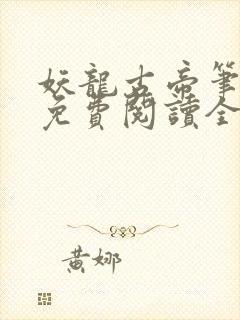 妖龍古帝筆
免費閱讀全
黃娜